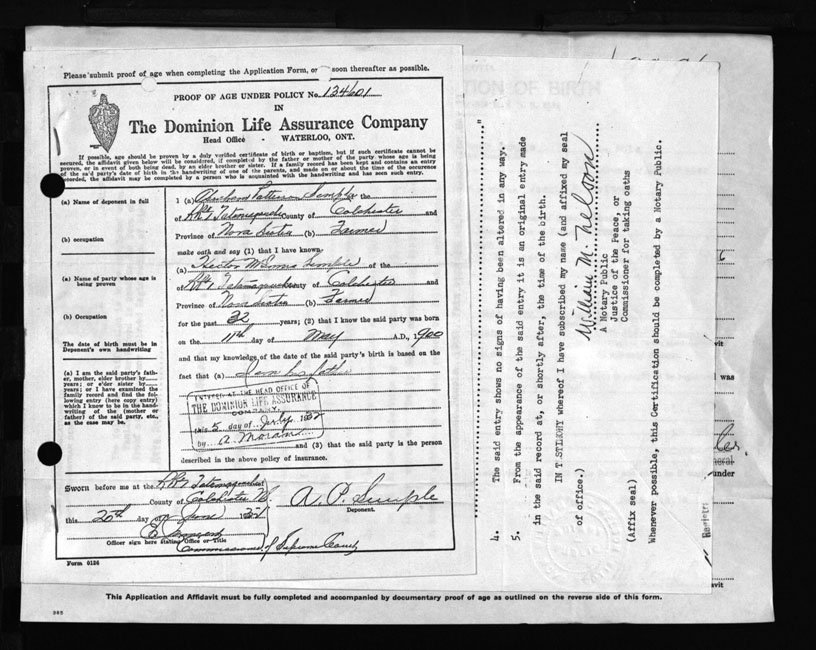 Please submit proof of age when completing the Application Form, or soon thereafter as possible.
PROOF OF AGE UNDER POLICY No. 134601
IN
The Dominion Life Assurance Company
Head Office - WATERLOO, ONT.
If possible, age should be proven by a duly verified certificate of birth or baptism, but if such certificate cannot be
secured, the affidavit given below will be considered, if completed by the father or mother of the party whose age is being
proven, or in event of both being dead, by an elder brother or sister. If a family record has been kept and contains an entry
of the said party's date of birth in the handwriting of one of the parents, and made on or about the time of the occurence
recorded, the affidavit may be completed by a person who is acquainted with the handwriting and has seen such entry.
(a) Name of deponent in full
(b) occupation
(a) Name of party whose age is
being proven
(b) Occupation
The date of birth must be in
Deponent's own handwriting
(a) I am the said party's fath-
er, mother, elder brother by
years; or elder sister by
years; or I have examined the
family record and find the fol-
lowing entry (here copy entry)
which I know to be in the hand-
writing of the (mother or
father) of the said party, etc.,
as the case may be.
I (a) Patterson Semple the
of RR1 Tatamagouche County of Colchester and
Province of Nova Scotia (b) Farmer
make oath and say (1) that I have known
(a) Hector Semple of the
of RR1 Tatamagouche County of Colchester and
Province of Nova Scotia (b) Farmer
for the past 32 years; (2) that I know the said party was born
on the 11th day of May A.D., 1900
and that my knowledge of the date of the said party's birth is based on the
fact that (a) I am his father
ENTERED AT THE HEAD OFFICE OF
THE DOMINION LIFE ASSURANCE
COMPANY,
this 5 day of July 1932
by A.
and (3) that the said party is the person
described in the above policy of insurance.
SWORN before me at the RR1 Tatamagouche
County of Colchester N.S.
this 20th day of June 1932
A. P. Semple
Deponent.
Officer sign here stating Office or Title
Commissioner of Supreme Court
Form 0126
4. The said entry shows no signs of having been altered in any way.
5. From the appearance of the said entry it is an original entry made
in the said record at, or shortly after, the time of the birth.
IN TESTIMONY whereof I have subscribed my name (and affixed my seal
of office.)
William M. Nelson
A Notary Public
Justice of the Peace, or
Commissioner for taking oaths
(Affix seal)
Whenever possible, this Certification should be completed by a Notary Public.
TION OF BIRTH
was
under
This Application and Affidavit must be fully completed and accompanied by documentary proof of age as outlined on the reverse side of this form.